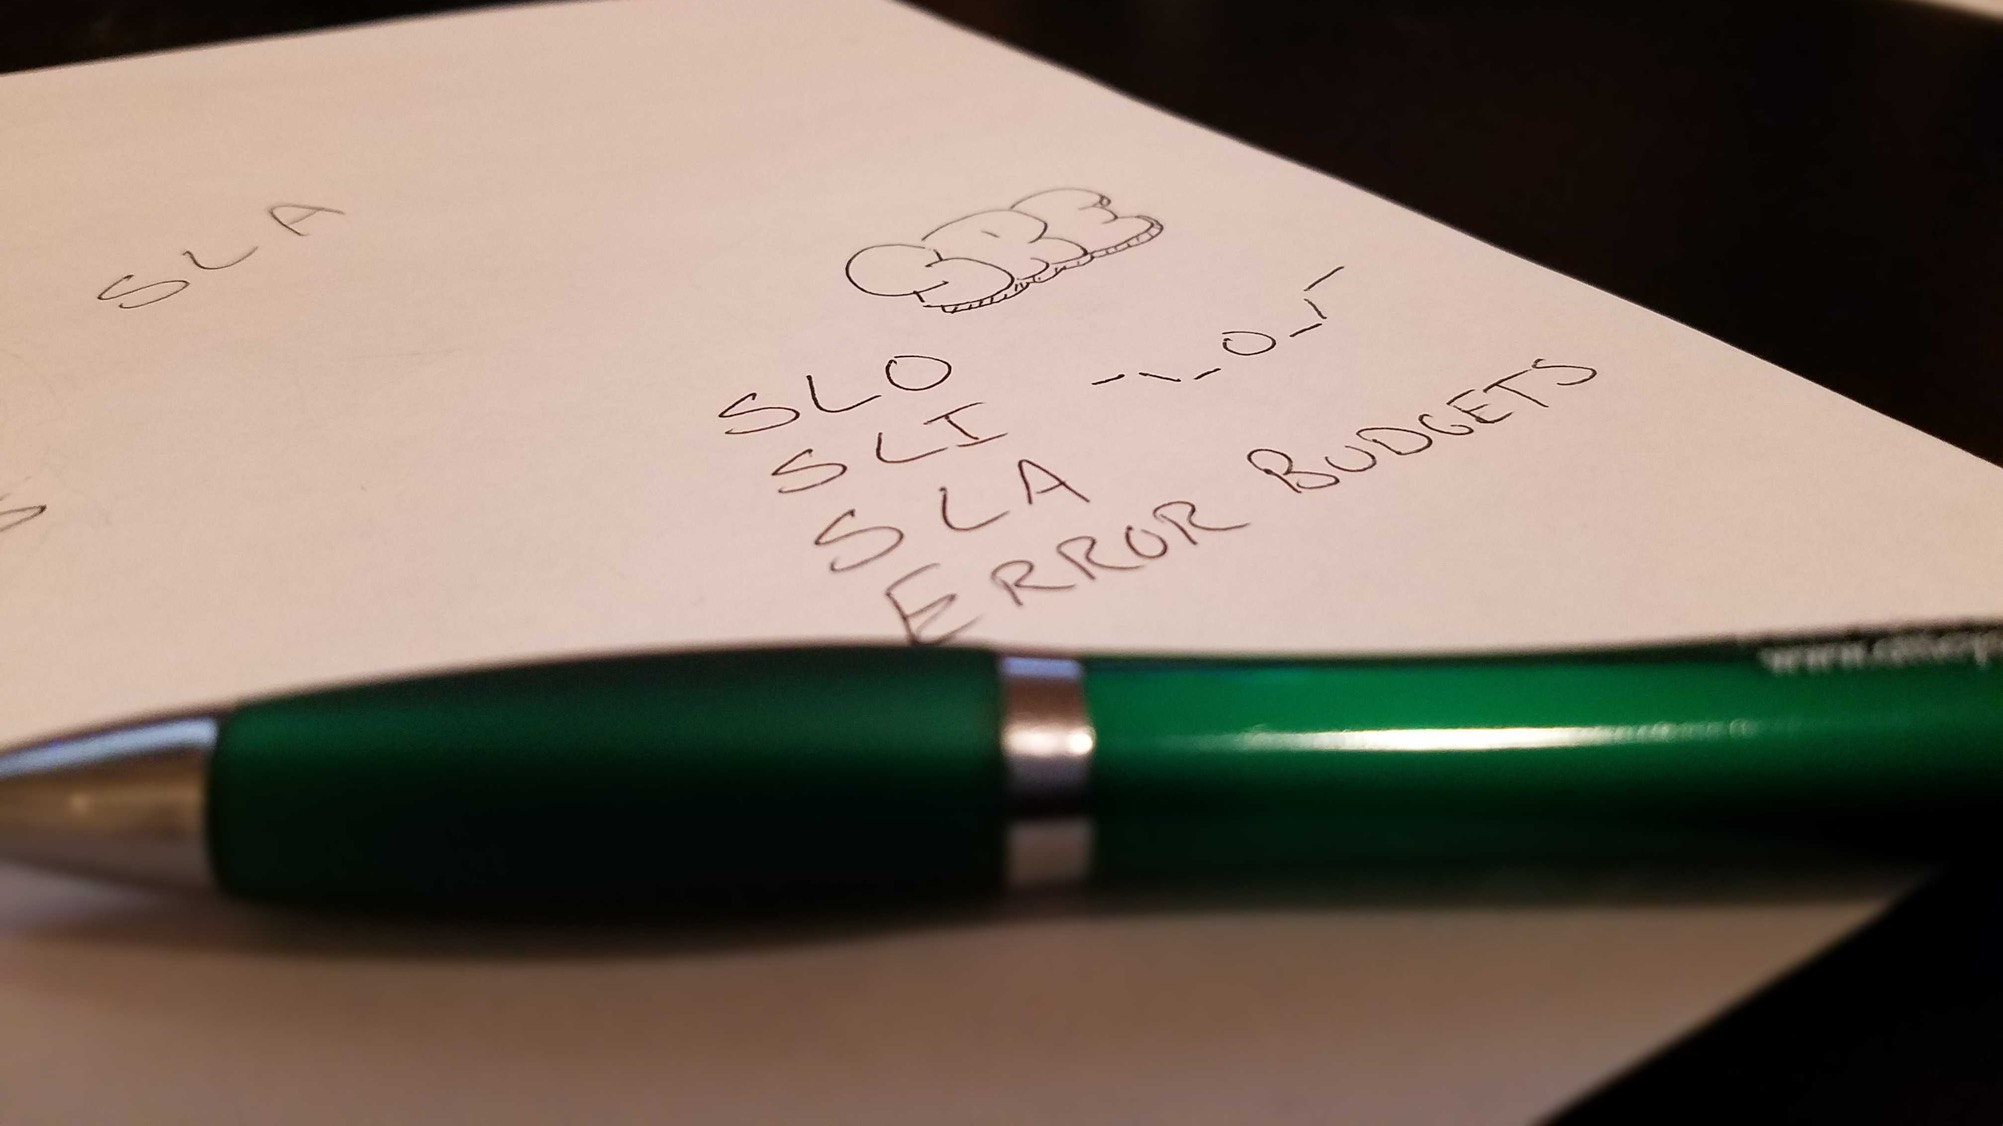 SLA
SRE
SLO
SLI
SLA
ERROR BUDGETS